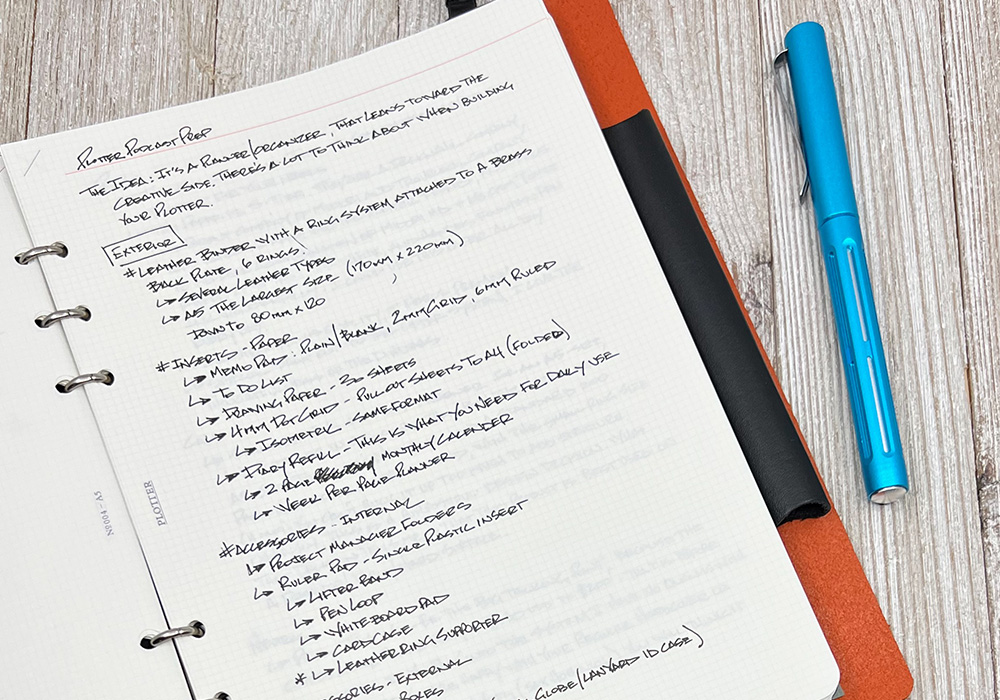 Plotter Podcast Prep
The Idea: It's a Planner/organizer, that leans toward the
creative side. There's a lot to think about when building
your Plotter.
Exterior
* Leather Binder with a ring system attached to a brass
back plate, 6 rings.
↳ Several leather types
↳ A5 the largest size (170mm x 220mm)
Down to 80mm x 120
* Inserts - Paper
↳ Memo Pad: Plain/Blank, 2mm Grid, 6mm Ruled
↳ To Do List
↳ Drawing Paper - 30 sheets
↳ 4mm Dot Grid - Pull out sheets to A4 (folded)
↳ Isometric - Same format
↳ Diary Refill - This is what you need for daily use
↳ 2 Page Monthly Calender
↳ Week per page planner
* Accessories - Internal
↳ Project Manager Folders
↳ Ruler Pad - Single plastic insert
↳ Lifter Band
↳ Pen Loop
↳ Whiteboard Pad
↳ Card Case
* ↳ Leather Ring Supporter
ssories - External
Globe/Lanyard ID case)
PLOTTER
A5